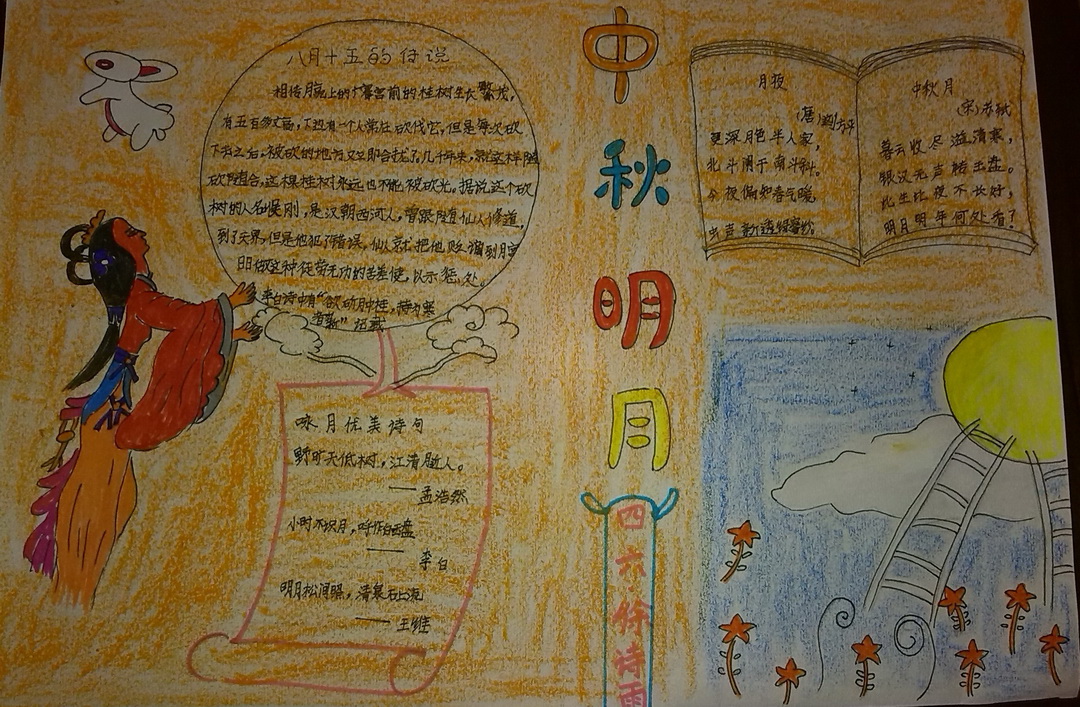 八月十五的传说
相传月亮上的广寒宫前的桂树生长繁茂，
有五百多丈高，下边有一个人常在砍伐它，但是每次砍
下去之后，被砍的地方又立即合拢了，几千年来，就这样随
砍随合，这棵桂树永远也不能被砍光。据说这个砍
树的人名吴刚，是汉朝西河人，曾跟随仙人修道，
到了天界，但是他犯了错误，仙人就把他贬谪到月宫
日日做这种徒劳无功的苦差使，以示惩处。
李白诗中有“欲斫月中桂，持为寒
者薪”记载
咏月优美诗句
野旷天低树，江清月近人。
——孟浩然
小时不识月，呼作白玉盘
——李白
明月松间照，清泉石上流
——王维
中
秋
明
月
四
六
徐
诗
雨
月夜
(唐)刘方平
更深月色半人家，
北斗阑干南斗斜。
今夜偏知春气暖，
虫声新透绿窗纱
中秋月
(宋)苏轼
暮云收尽溢清寒，
银汉无声转玉盘。
此生此夜不长好，
明月明年何处看？